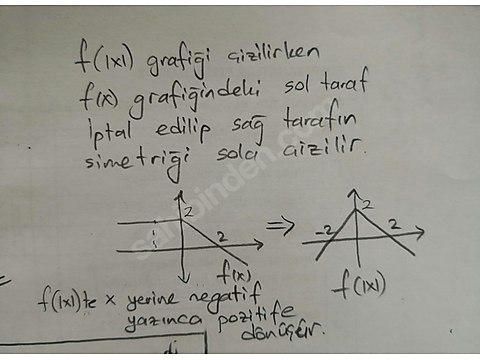 f(|x|) grafiği çizilirken
f(x) grafiğindeki sol taraf
iptal edilip sağ tarafın
simetriği sola çizilir.
2
2
f(x)
⇒
2
-2
2
f(|x|)
=
f(|x|)te x yerine negatif
yazınca pozitife
dönüşür.
di
sahibinden.com